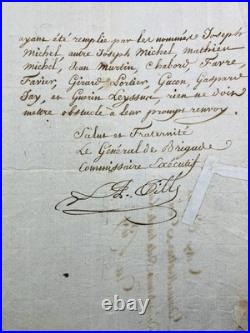 ayant été remplie par les nommés Joseph
Michel, autre Joseph Michel, mathieu
michel, Jean Martin, Chabord Favre,
Favier, Gérard Sortier, Gacon, Gaspard
Jay, et Guerin Leyssac, rien ne doit
mettre obstacle à leur prompt renvoy.
Salut et Fraternité
Le Général de Brigade
Commissaire Exécutif
A. Pille